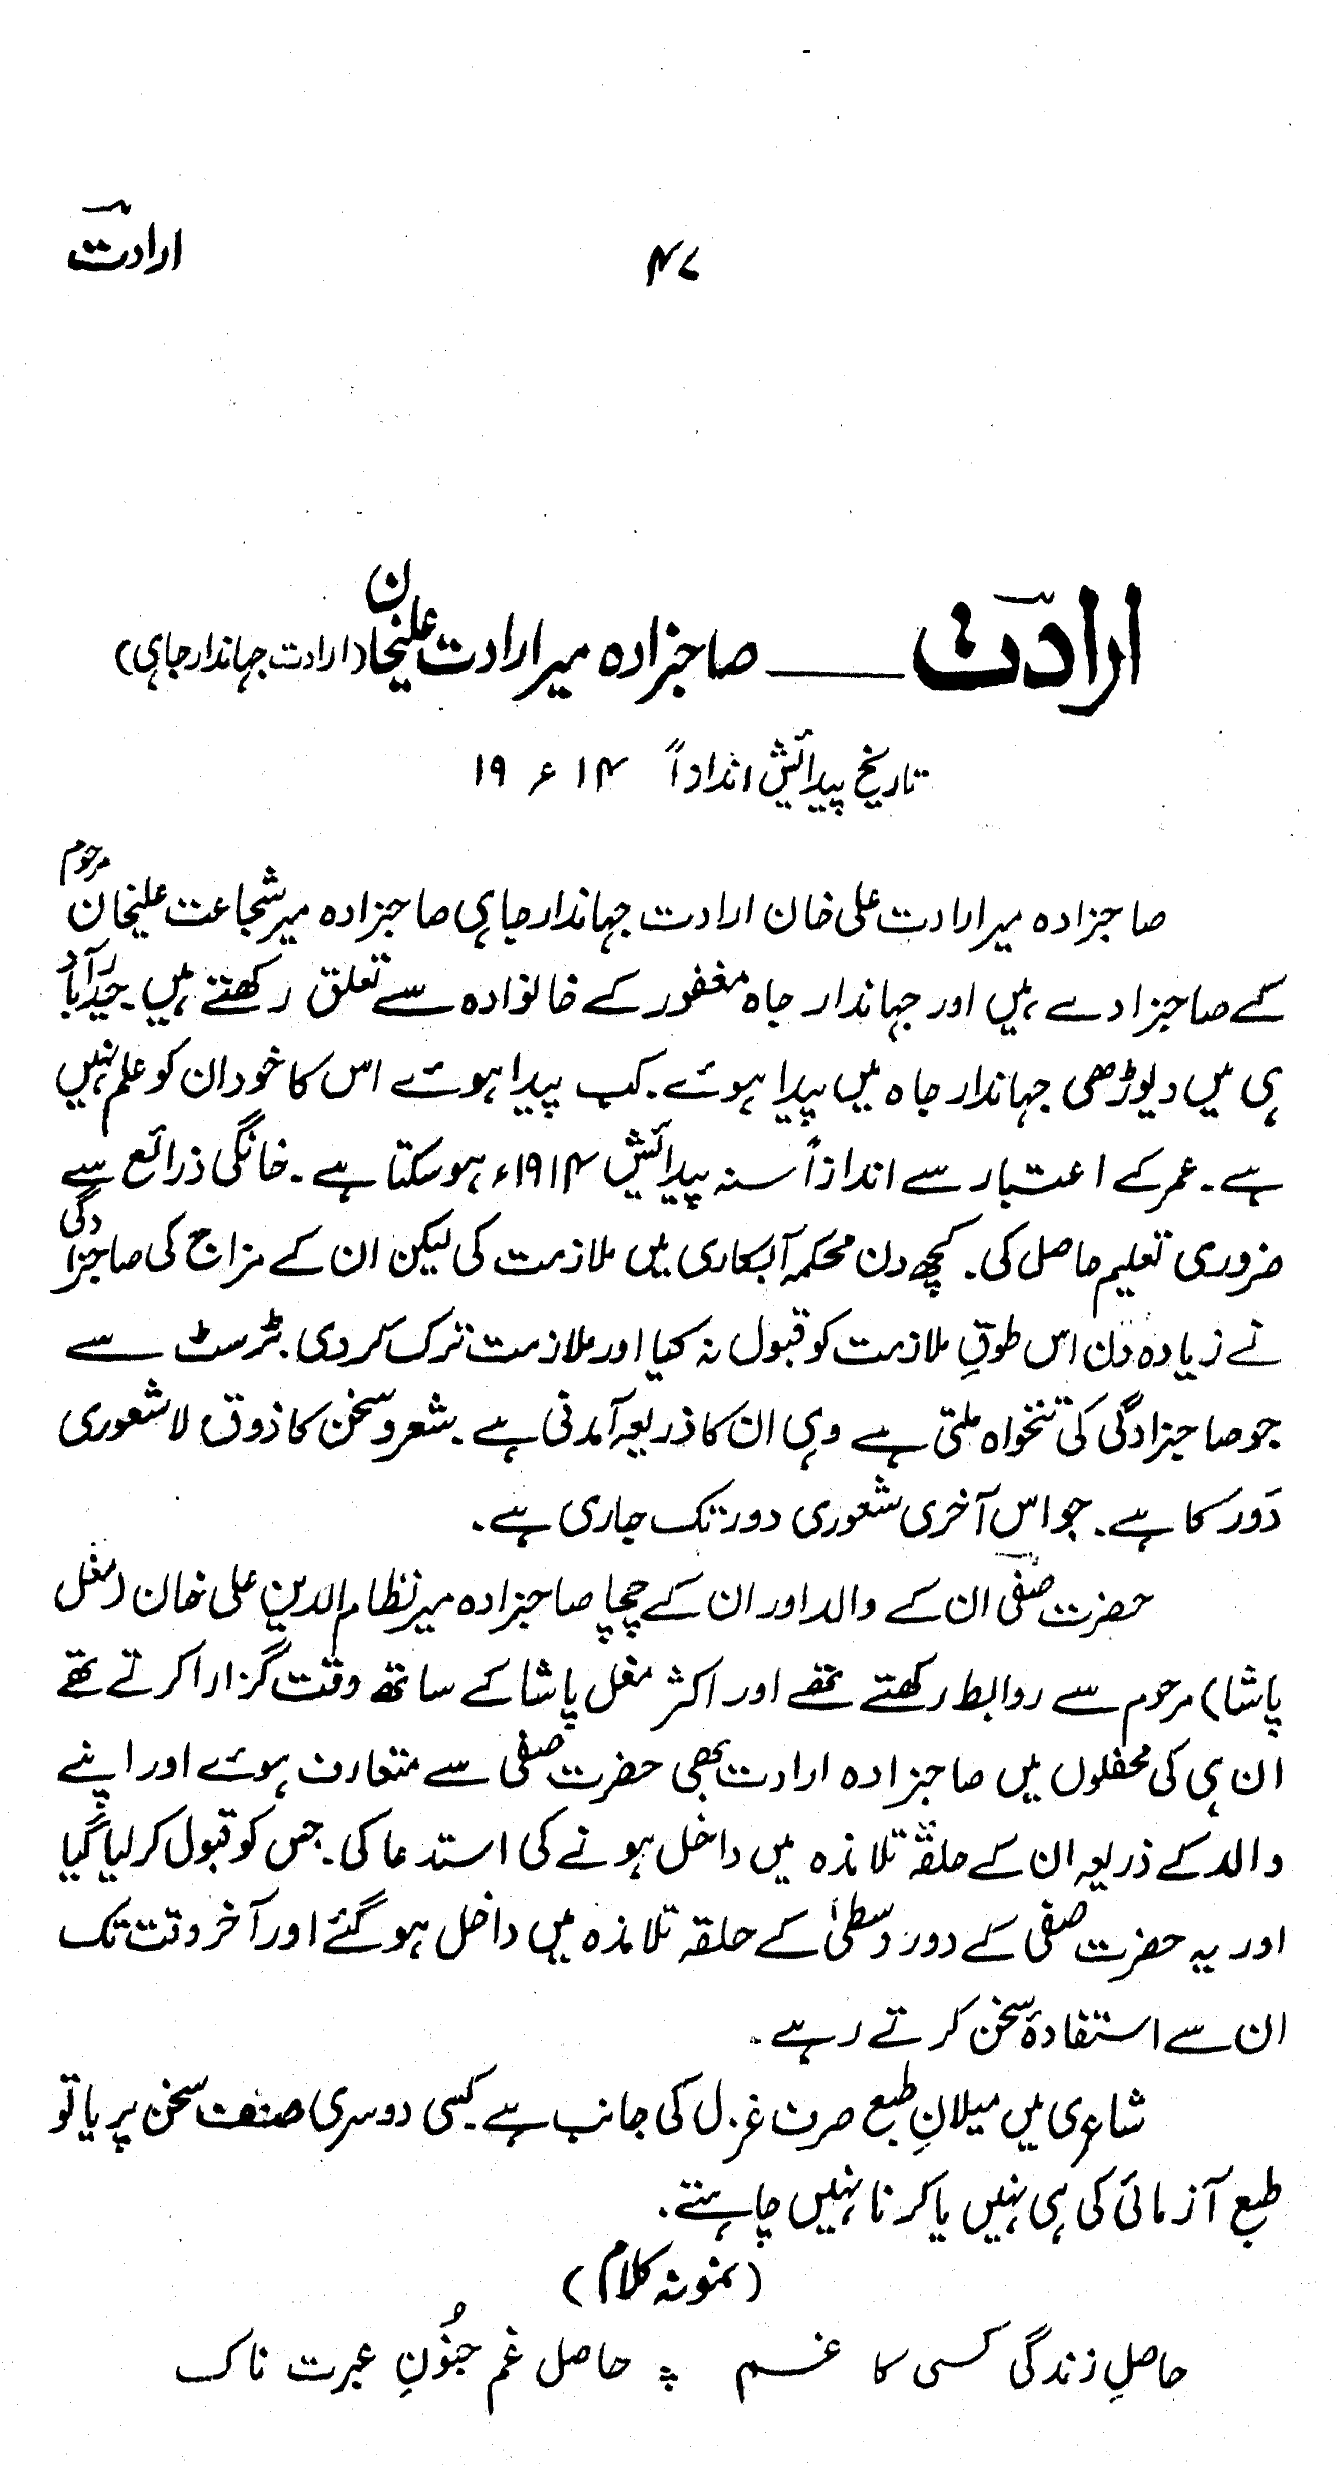 ارادتؔ
۴۷
ارادتؔ ــــ صاحبزادہ میر ارادت علیخان (ارادت جہاندار جاہی)
تاریخ پیدائش انداداً ۱۹۱۴ء
صاحبزادہ میر ارادت علی خان ارادت جہاندار جاہی صاحبزادہ میر شجاعت علیخان مرحوم
کے صاحبزادے ہیں اور جہاندار جاہ مغفور کے خانوادہ سے تعلق رکھتے ہیں۔ حیدرآباد
ہی میں دیوڑھی جہاندار جاہ میں پیدا ہوئے۔ کب پیدا ہوئے اس کا خود ان کو علم نہیں
ہے۔ عمر کے اعتبار سے اندازاً سنہ پیدائش ۱۹۱۴ء ہوسکتا ہے۔ خانگی ذرائع سے
ضروری تعلیم حاصل کی۔ کچھ دن محکمہ آبکاری میں ملازمت کی لیکن ان کے مزاج کی صاحبزادگی
نے زیادہ دن اس طوقِ ملازمت کو قبول نہ کیا اور ملازمت ترک کردی۔ ٹرسٹ سے
جو صاحبزادگی کی تنخواہ ملتی ہے وہی ان کا ذریعہ آمدنی ہے۔ شعر و سخن کا ذوق لاشعوری
دَور کا ہے۔ جو اس آخری شعوری دور تک جاری ہے۔
حضرت صفیؔ ان کے والد اور ان کے چچا صاحبزادہ میر نظام الدین علی خان (مغل
پاشا) مرحوم سے روابط رکھتے تھے اور اکثر مغل پاشا کے ساتھ وقت گزارا کرتے تھے
ان ہی کی محفلوں میں صاحبزادہ ارادت بھی حضرت صفی سے متعارف ہوئے اور اپنے
والد کے ذریعہ ان کے حلقۂ تلامذہ میں داخل ہونے کی استدعا کی۔ جس کو قبول کرلیا گیا
اور یہ حضرت صفی کے دور وسطیٰ کے حلقہ تلامذہ میں داخل ہوگئے اور آخر وقت تک
ان سے استفادۂ سخن کرتے رہے۔
شاعری میں میلانِ طبع صرف غزل کی جانب ہے۔ کسی دوسری صنف سخن پر یا تو
طبع آزمائی کی ہی نہیں یا کرنا نہیں چاہتے۔
(نمونہ کلام)
حاصلِ زندگی کسی کا غم ؛ حاصل غم جنُونِ عبرت ناک